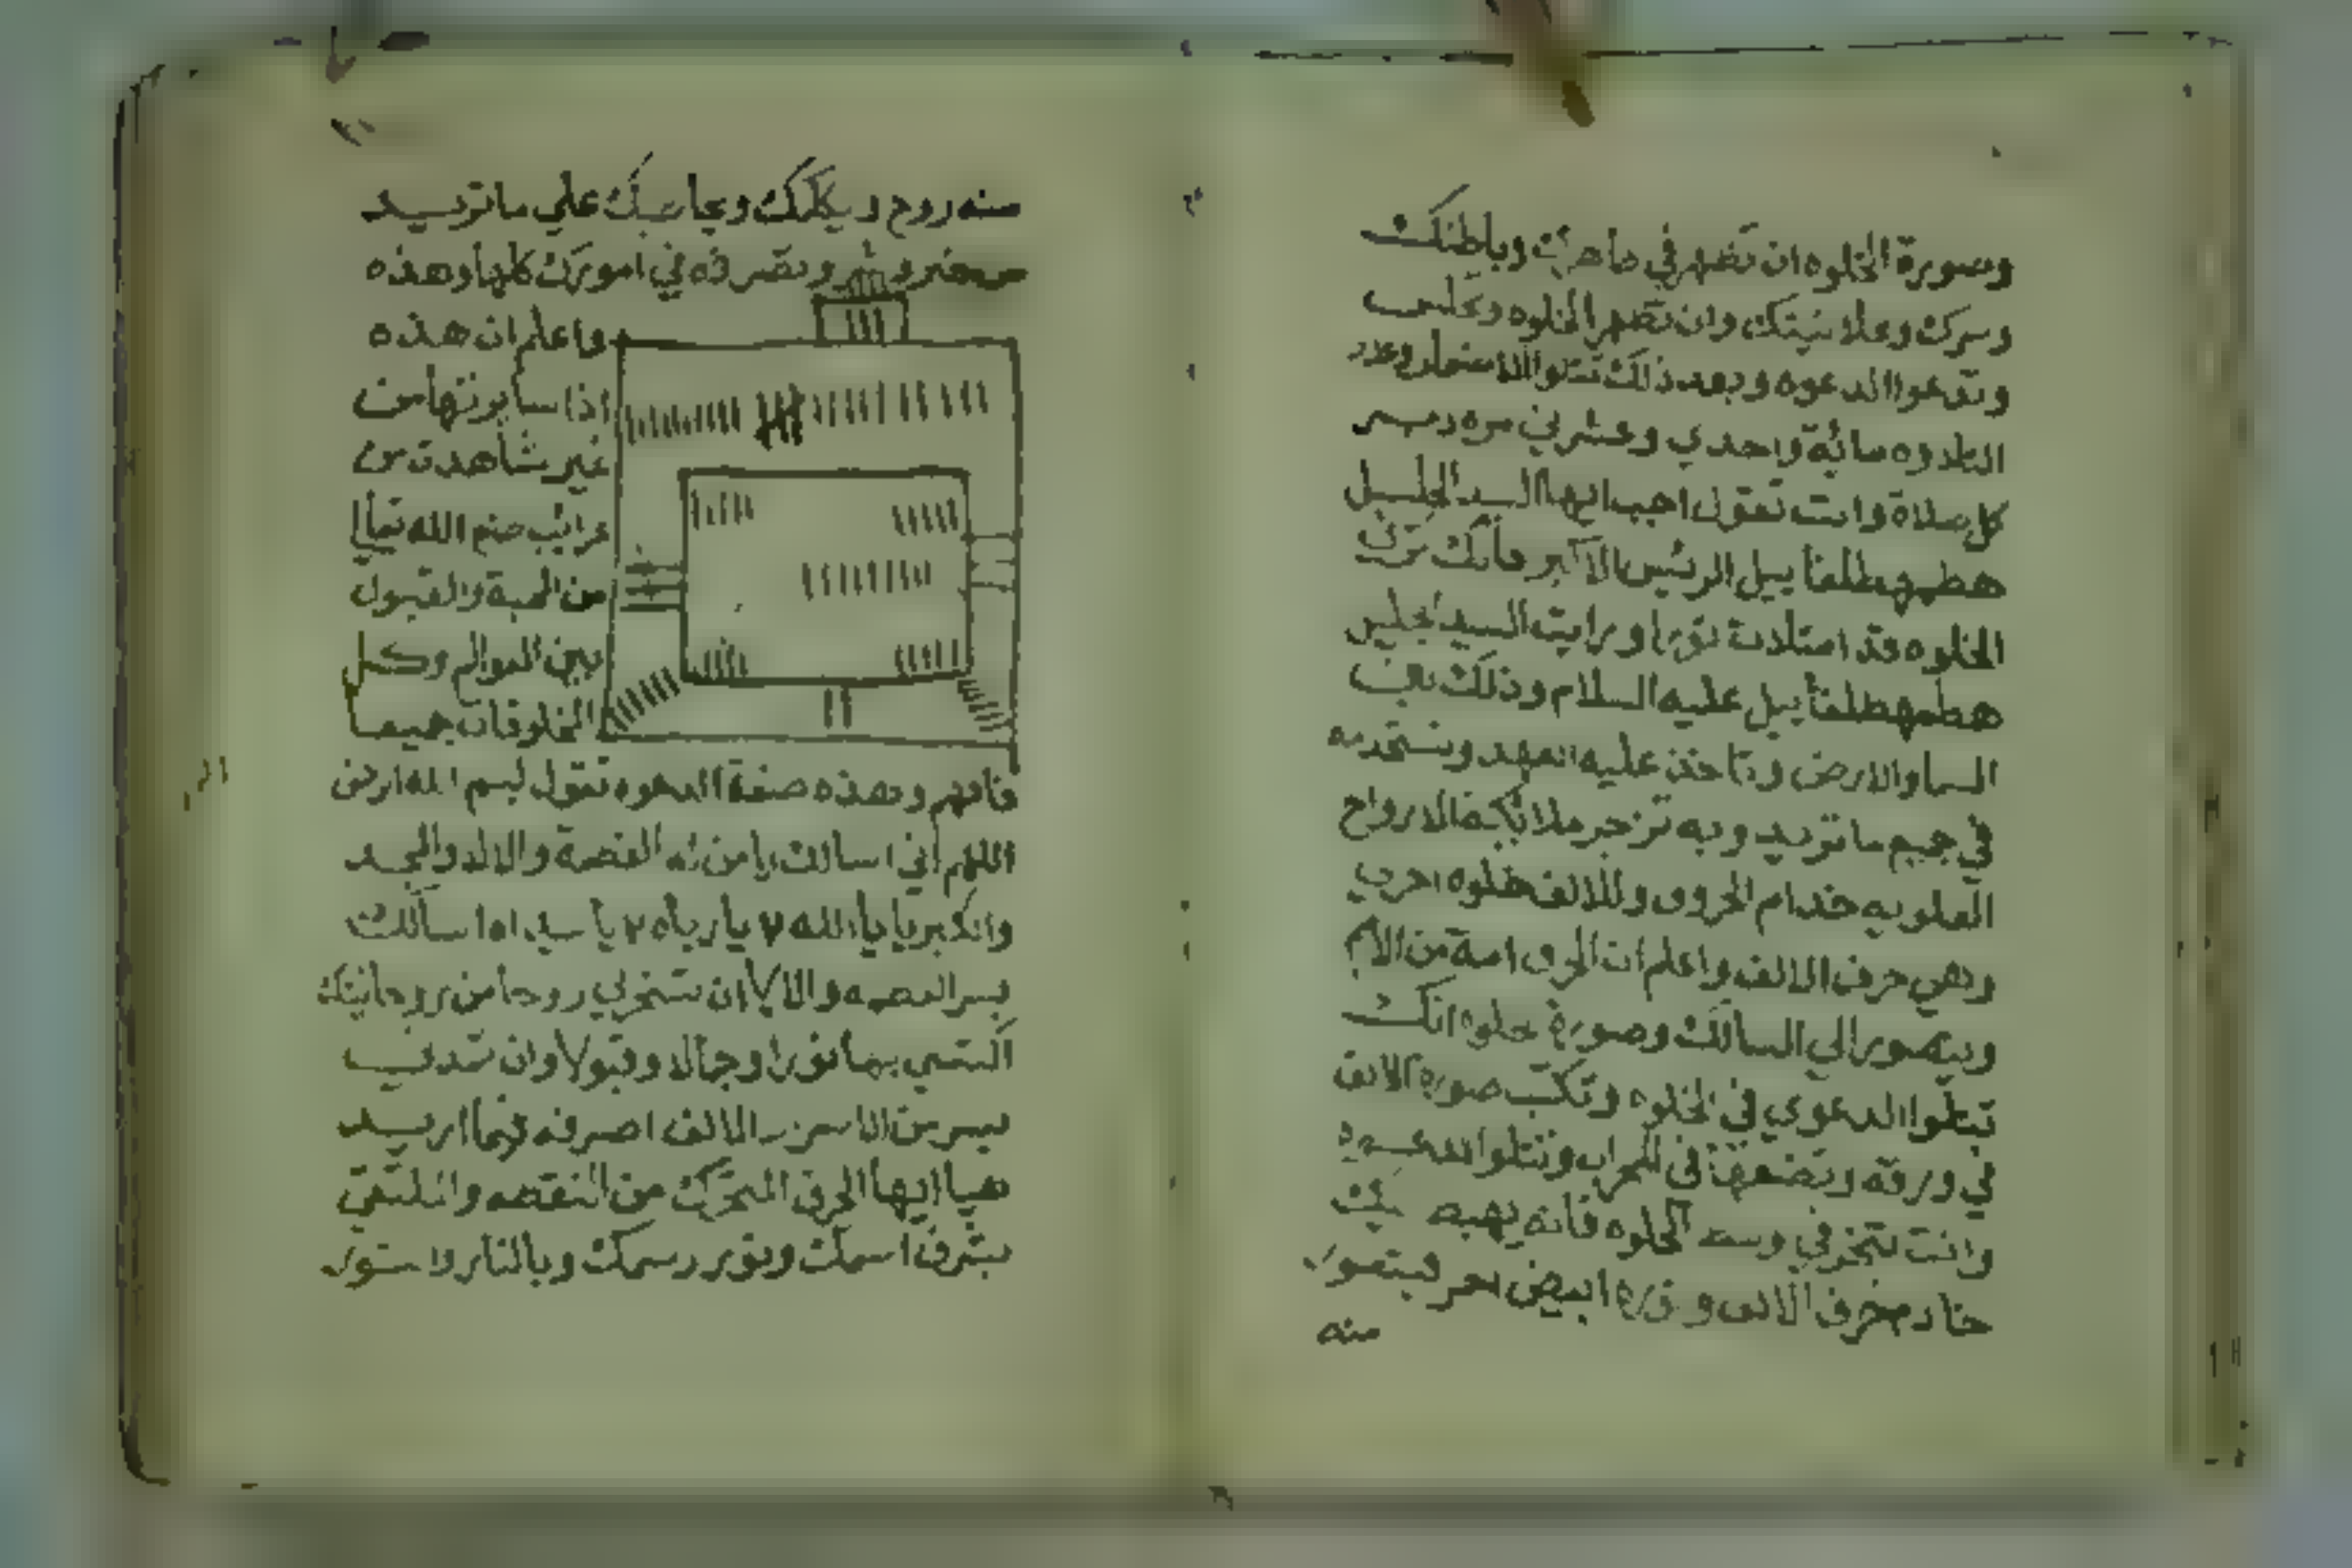 وصورة الخلوه ان تضهر في ظاهرك وباطنك
وسرك وعلانيتك وان تضهر الخلوه وتجلس
وتدعوا الدعوه وبعد ذلك تتلوا الاضمار وعدد
التلاوه مائة واحدي وعشرين مره دبر
كل صلاة وانت تقول اجب ايها السيد الجليل
هطمهطلفيائيل الرئيس الاكبر فانك ترى
الخلوه قد امتلات نورا ورايت السيد الجليل
هطمهطلفيائيل عليه السلام وذلك بين
السما والارض وتاخذ عليه العهد وتستخدمه
في جميع ما تريد وبه تزجر ملائكة الارواح
العلويه خدام الحروف وللالف خلوه اخري
وهي حرف الالف واعلم ان الحرف امة من الامم
ويتصور الي السالك وصورة خلوه انك
تتلوا الدعوي في الخلوه وتكتب صورة الالف
في ورقه وتضعها في المحراب وتتلوا الدعوه
وانت تبخر في وسط الخلوه فانه يهبط
خادم حرف الالف ابيض فيتصور
منه
منه روح ويكلمك ويجاوبك علي ما تريد
من خير وشر وتصرفه في امورك كلها وهذه
واعلم ان هذه
اذا سايرتها من
غير شاهدت من
غرائب صنع الله تعالي
من الهيبة والقبول
بين العوالم وكل
المخلوقات جميعا
فافهم وهذه صفة الدعوه تقول بسم الله
اللهم اني اسالك يا من له العضمة والالا والمجد
والكبريا يا الله ٧ يا رباه ٧ يا سيداه اسالك
بسر العضمه والالا ان تسخر لي روحا من روحانيتك
اكتسي بها نورا وجمالا وقبولا وان تمدني
بسر من الاسرار الالف اصرفه فيما اريد
هيا ايها الحرف المتحرك من النقطه والملتقي
بشرف اسمك ونور رسمك وبالنار